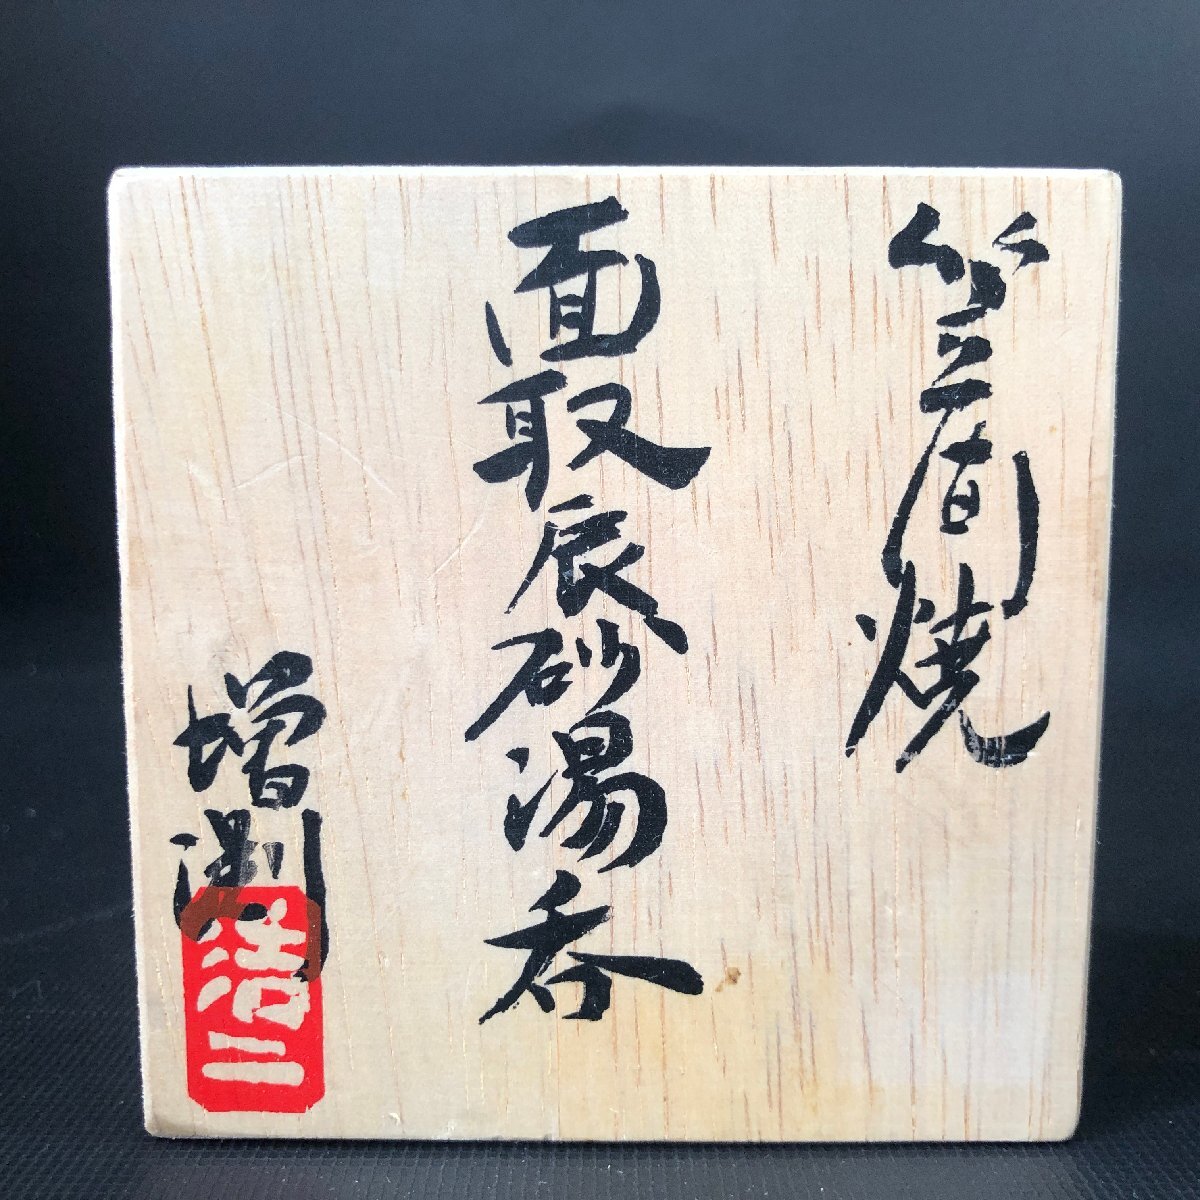 笠間焼
面取辰砂湯呑
増渕
浩二